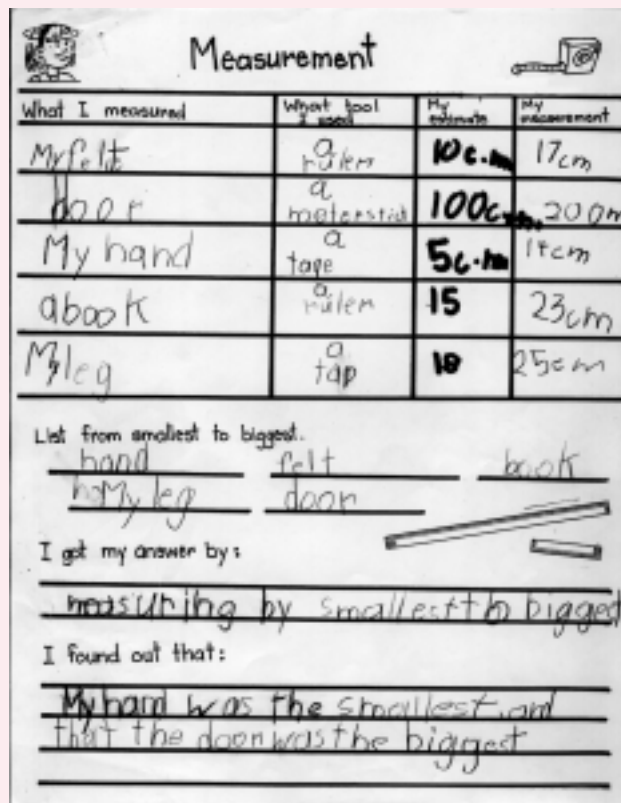 Measurement
What I measured What tool I used My estimate My measurement
My felt a ruler 10c.m 17cm
door a meterstick 100c.m. 200m
My hand a tape 5c.m 14cm
a book a ruler 15 23cm
My leg a tap 18 25cm
List from smallest to biggest.
hand felt book
My leg door
I got my answer by:
measuring by smallest to bigged
I found out that:
My hand was the smallest and
that the door was the biggest